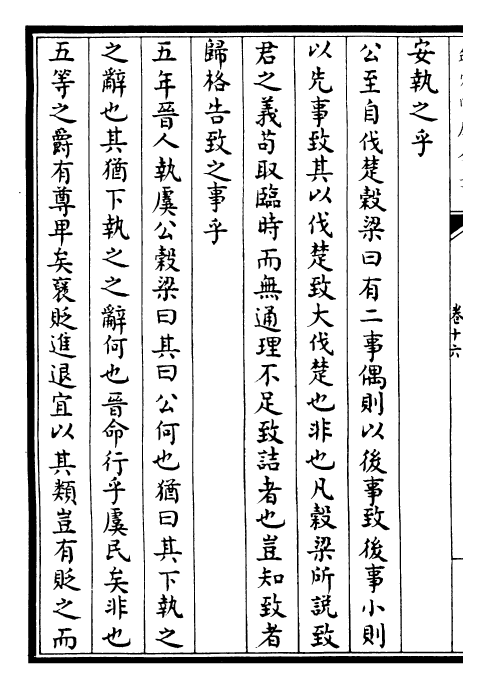 安執之乎
公至自伐楚穀梁曰有二事偶則以後事致後事小則
以先事致其以伐楚致大伐楚也非也凡穀梁所説致
君之義苟取臨時而無通理不足致詰者也豈知致者
歸格告致之事乎
五年晉人執虞公穀梁曰其曰公何也猶曰其下執之
之辭也其猶下執之之辭何也晉命行乎虞民矣非也
五等之爵有尊卑矣襃貶進退宜以其類豈有貶之而
卷十六